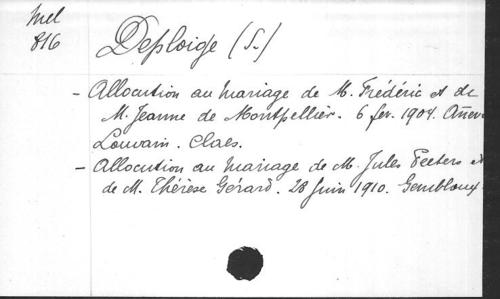 Mel
816
Deploige (S.)
- Allocution au mariage de M. Frédéric et de
M. Jeanne de Montpellier. 6 fev. 1904.
Louvain. Claes.
- Allocution au mariage de M. Jules Peeters et
de M. Thérèse Gérard. 28 Juin 1910. Gembloux